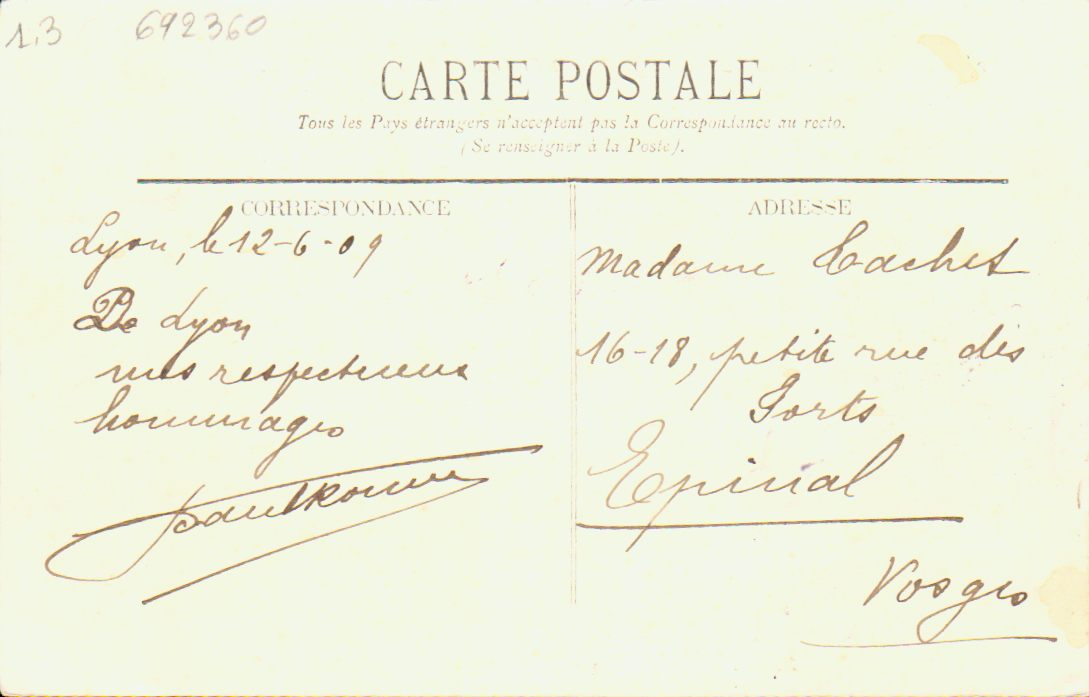 1.3 692360
CARTE POSTALE
Tous les Pays étrangers n'acceptent pas la Correspondance au recto.
(Se renseigner à la Poste).
CORRESPONDANCE
Lyon, le 12-6-09
De Lyon
mes respectueux
hommages
ADRESSE
Madame Cachet
16-18, petite rue des
Forts
Epinal
Vosges